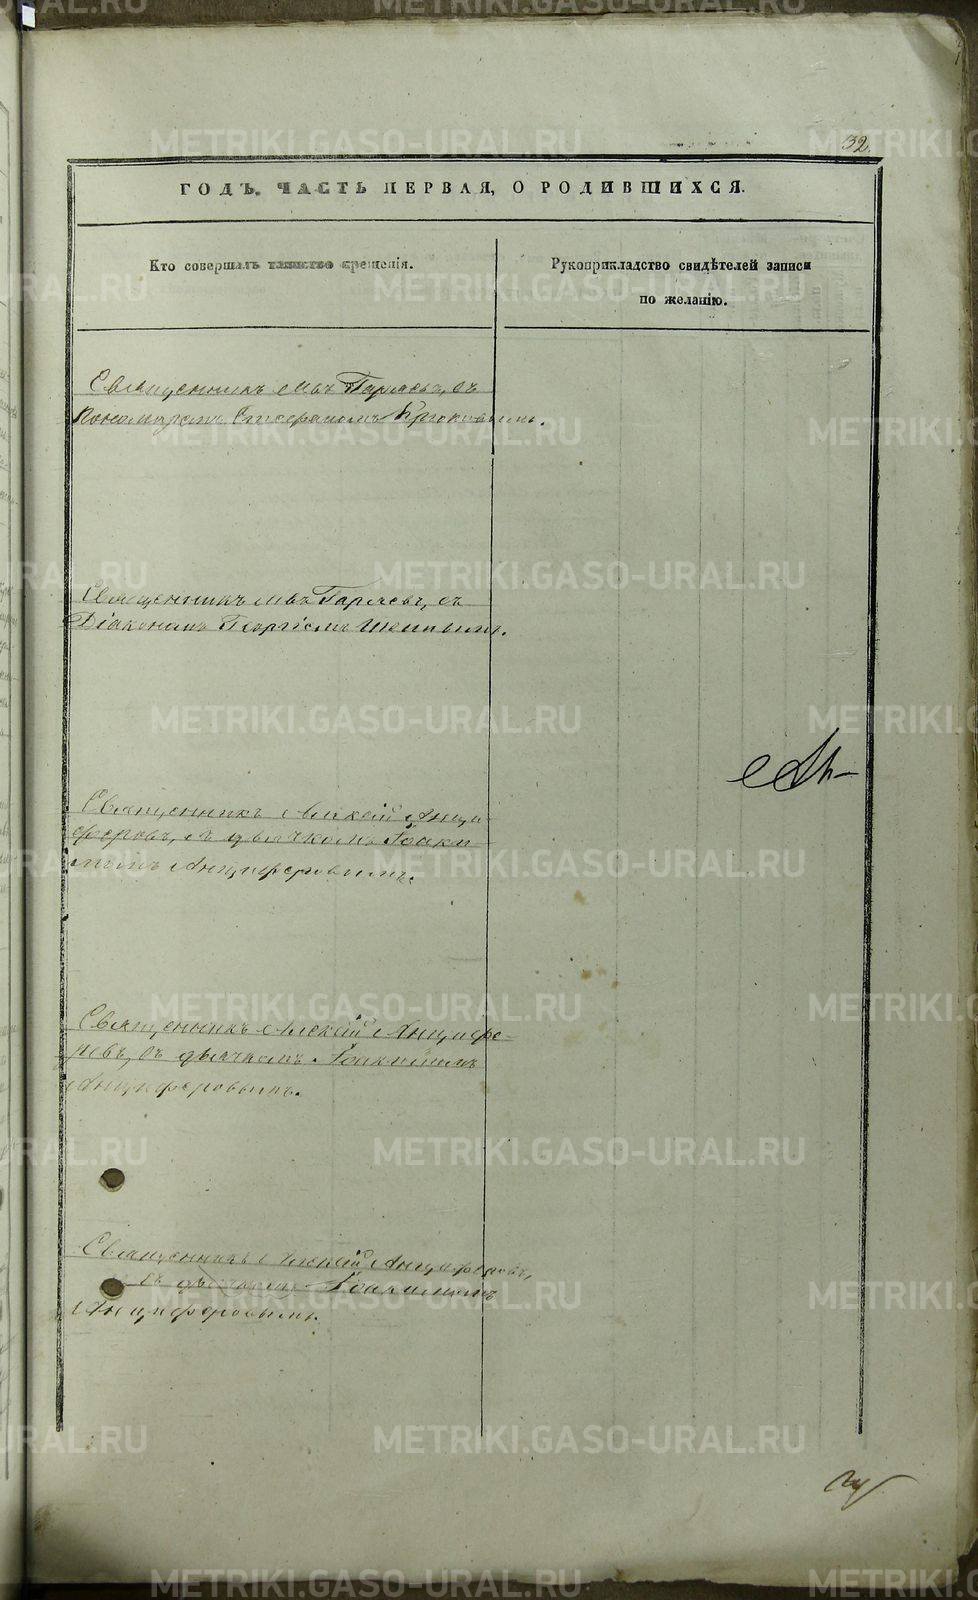 32.
ГОДЪ. ЧАСТЬ ПЕРВАЯ, О РОДИВШИХСЯ.
Кто совершалъ таинство крещенія.
Рукоприкладство свидѣтелей записи
по желанію.
Священникъ Левъ Гаряевъ, съ
Пономаремъ Стефаномъ Крюковымъ.
Священникъ Левъ Гаряевъ, съ
Діакономъ Георгіемъ
Священникъ Алексѣй Анци-
феровъ, съ дьячкомъ Іоаки-
момъ Анциферовымъ.
Священникъ Алексѣй Анцифе-
ровъ, съ дьячкомъ Іоакимомъ
Анциферовымъ.
Священникъ Алексѣй Анциферовъ,
съ дьячкомъ Іоакимомъ
Анциферовымъ.
METRIKI.GASO-URAL.RU